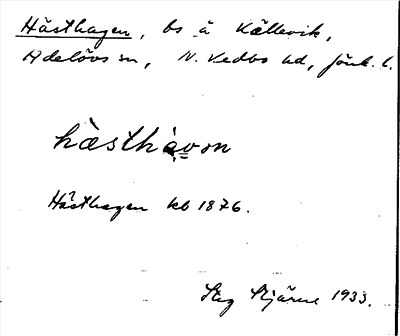 Hästhagen, bs å Källevik,
Adelövs sn, N. Vedbo hd, Jönk. l.
hàsthàvɷn
Hästhagen kb 1876.
Stig Stjärne 1933.